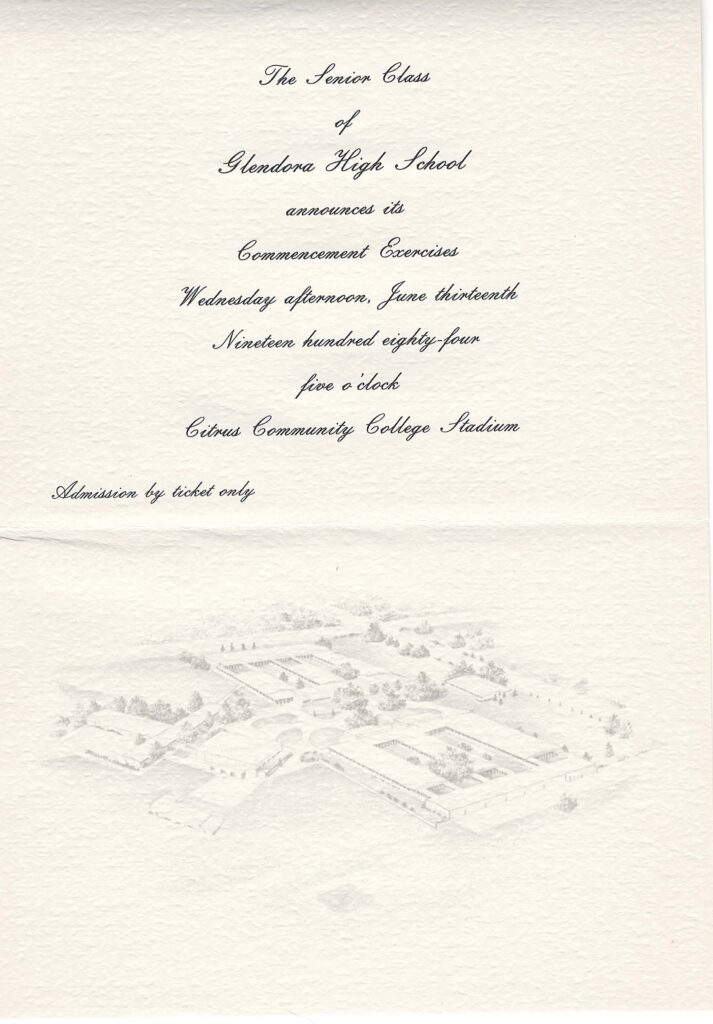 The Senior Class
of
Glendora High School
announces its
Commencement Exercises
Wednesday afternoon, June thirteenth
Nineteen hundred eighty-four
five o'clock
Citrus Community College Stadium
Admission by ticket only